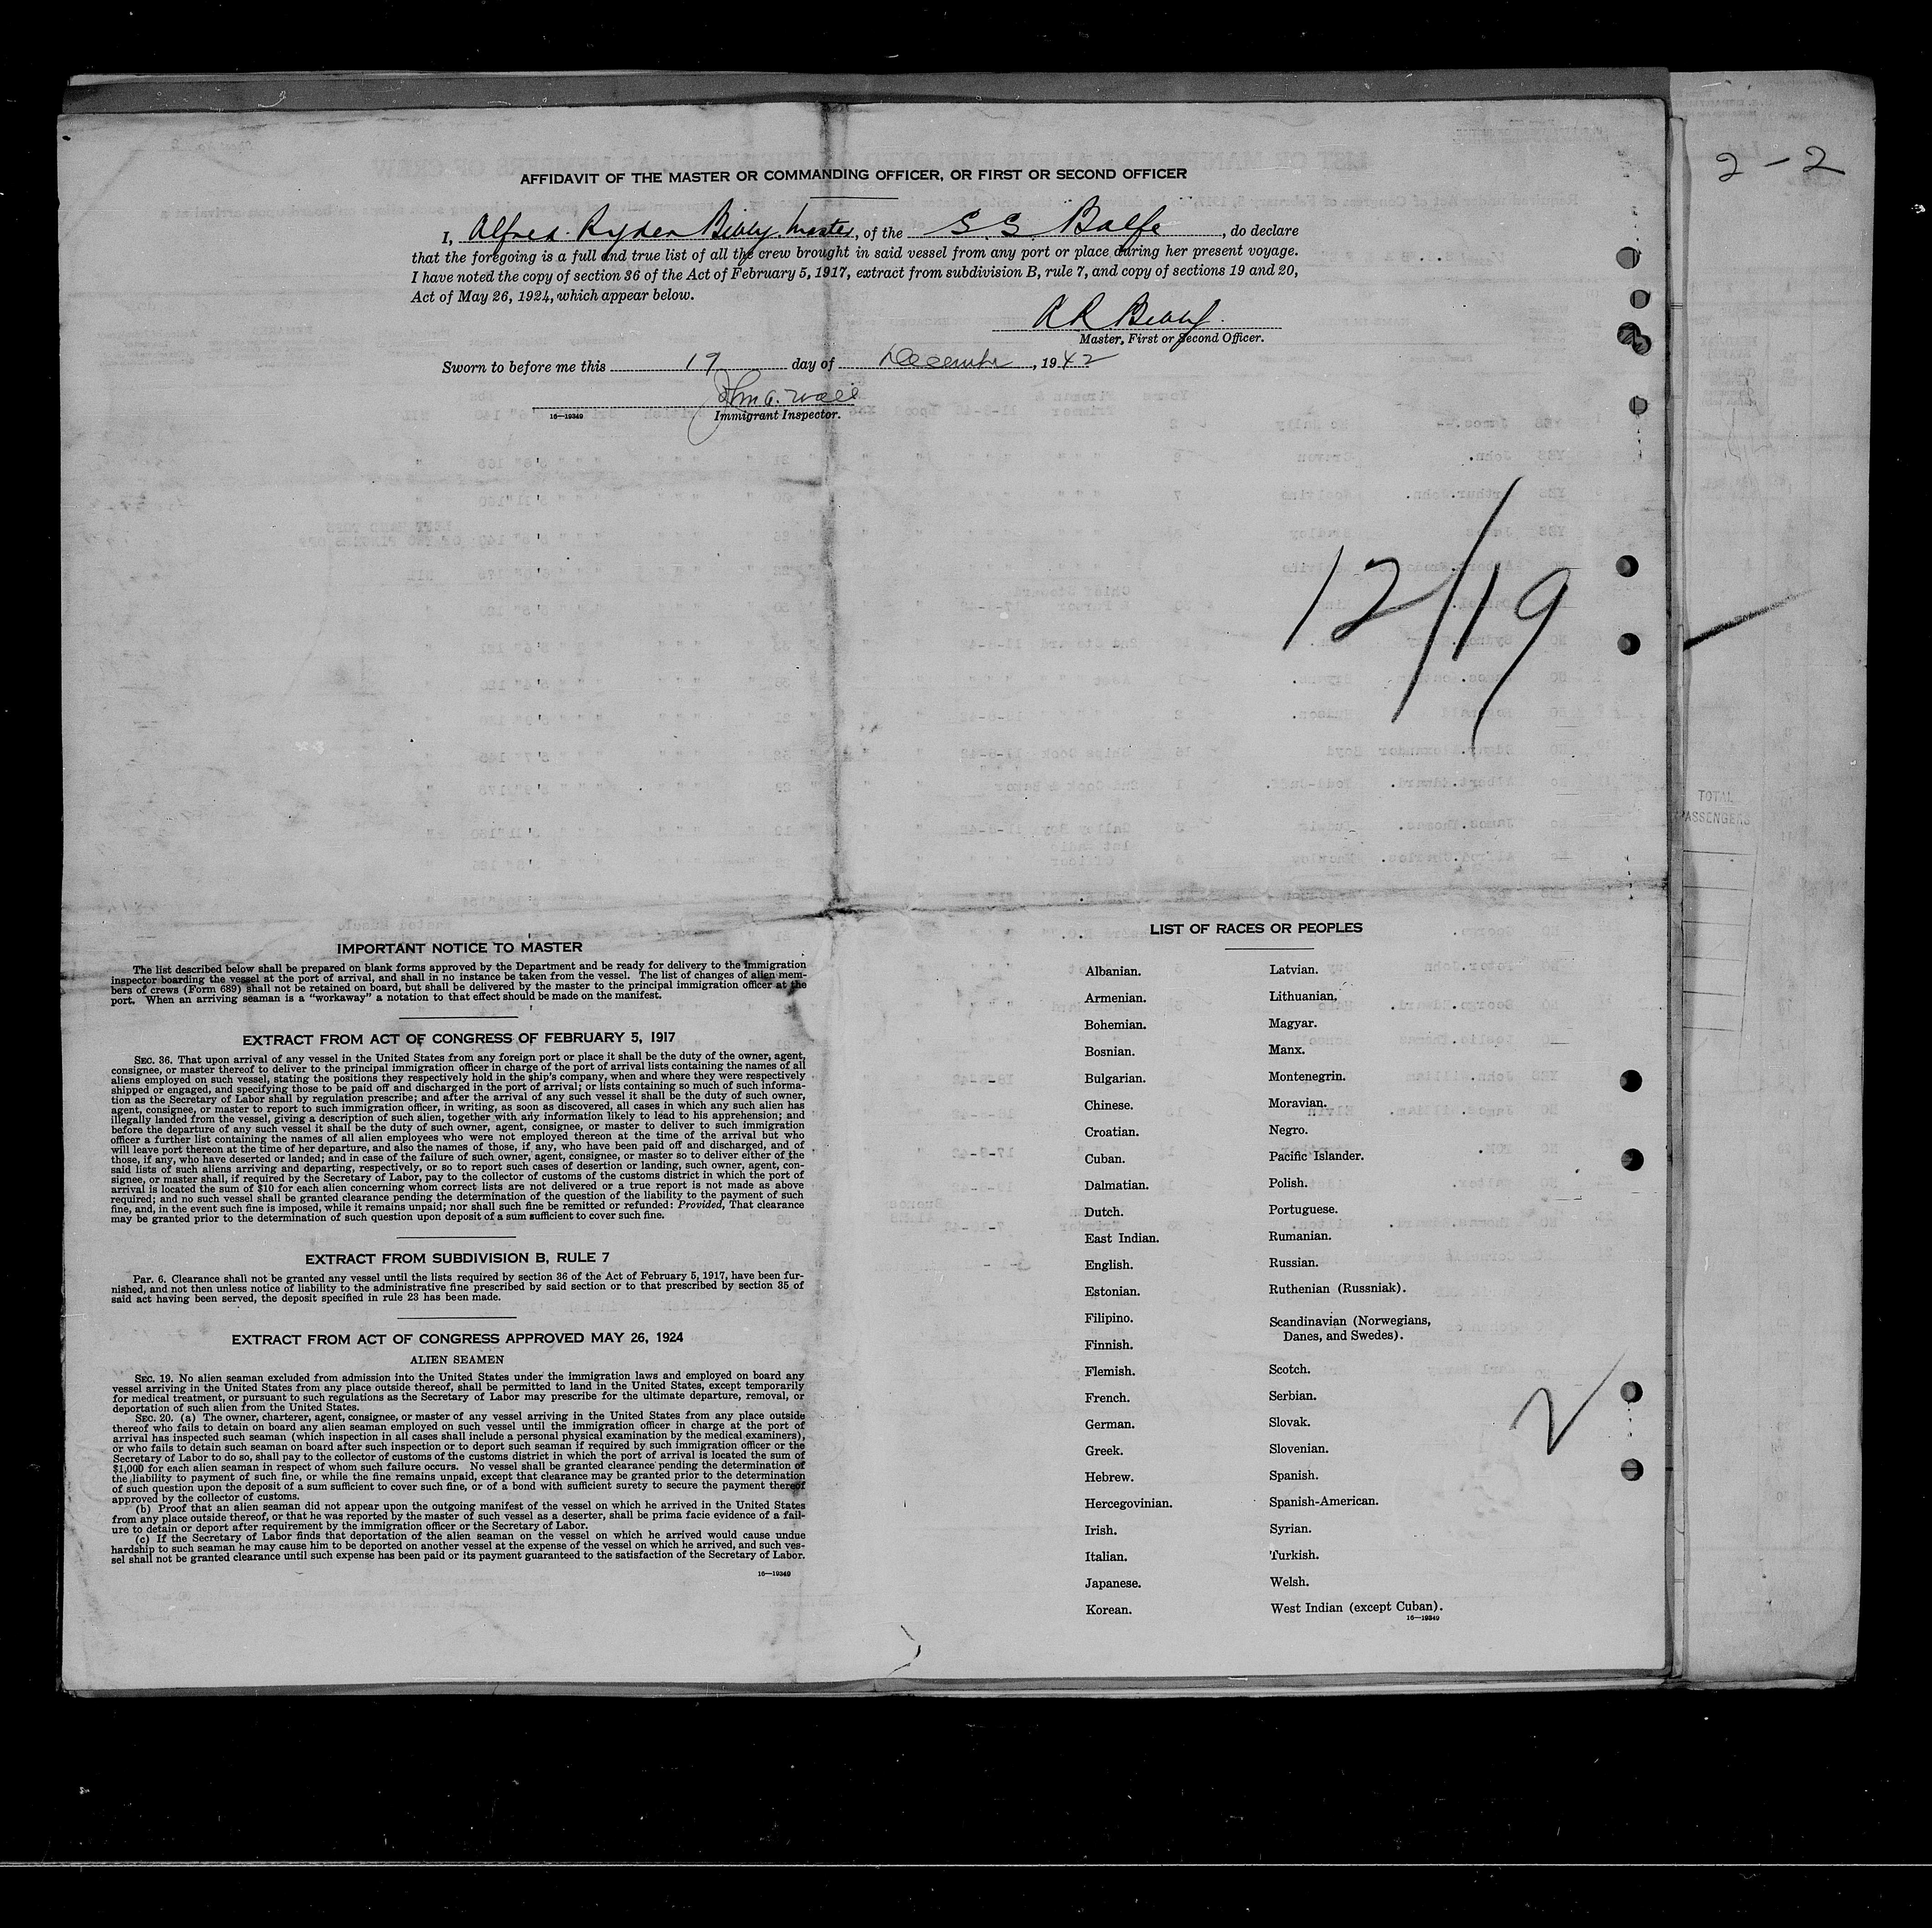 AFFIDAVIT OF THE MASTER OR COMMANDING OFFICER, OR FIRST OR SECOND OFFICER
I, Alfred Ryder Bibby Master, of the S.S. Balfe, do declare
that the foregoing is a full and true list of all the crew brought in said vessel from any port or place during her present voyage.
I have noted the copy of section 36 of the Act of February 5, 1917, extract from subdivision B, rule 7, and copy of sections 19 and 20,
Act of May 26, 1924, which appear below.
A R Bibby.
Master, First or Second Officer.
Sworn to before me this 19 day of December, 1942
16—19349 Immigrant Inspector.
2-2
12/19
TOTAL
PASSENGERS
IMPORTANT NOTICE TO MASTER
The list described below shall be prepared on blank forms approved by the Department and be ready for delivery to the immigration
inspector boarding the vessel at the port of arrival, and shall in no instance be taken from the vessel. The list of changes of alien mem-
bers of crews (Form 689) shall not be retained on board, but shall be delivered by the master to the principal immigration officer at the
port. When an arriving seaman is a “workaway” a notation to that effect should be made on the manifest.
EXTRACT FROM ACT OF CONGRESS OF FEBRUARY 5, 1917
SEC. 36. That upon arrival of any vessel in the United States from any foreign port or place it shall be the duty of the owner, agent,
consignee, or master thereof to deliver to the principal immigration officer in charge of the port of arrival lists containing the names of all
aliens employed on such vessel, stating the positions they respectively hold in the ship's company, when and where they were respectively
shipped or engaged, and specifying those to be paid off and discharged in the port of arrival; or lists containing so much of such informa-
tion as the Secretary of Labor shall by regulation prescribe; and after the arrival of any such vessel it shall be the duty of such owner,
agent, consignee, or master to report to such immigration officer, in writing, as soon as discovered, all cases in which any such alien has
illegally landed from the vessel, giving a description of such alien, together with any information likely to lead to his apprehension; and
before the departure of any such vessel it shall be the duty of such owner, agent, consignee, or master to deliver to such immigration
officer a further list containing the names of all alien employees who were not employed thereon at the time of the arrival but who
will leave port thereon at the time of her departure, and also the names of those, if any, who have been paid off and discharged, and of
those, if any, who have deserted or landed; and in case of the failure of such owner, agent, consignee, or master so to deliver either of the
said lists of such aliens arriving and departing, respectively, or so to report such cases of desertion or landing, such owner, agent, con-
signee, or master shall, if required by the Secretary of Labor, pay to the collector of customs of the customs district in which the port of
arrival is located the sum of $10 for each alien concerning whom correct lists are not delivered or a true report is not made as above
required; and no such vessel shall be granted clearance pending the determination of the question of the liability to the payment of such
fine, and, in the event such fine is imposed, while it remains unpaid; nor shall such fine be remitted or refunded: Provided, That clearance
may be granted prior to the determination of such question upon deposit of a sum sufficient to cover such fine.
EXTRACT FROM SUBDIVISION B, RULE 7
Par. 6. Clearance shall not be granted any vessel until the lists required by section 36 of the Act of February 5, 1917, have been fur-
nished, and not then unless notice of liability to the administrative fine prescribed by said section or to that prescribed by section 35 of
said act having been served, the deposit specified in rule 23 has been made.
EXTRACT FROM ACT OF CONGRESS APPROVED MAY 26, 1924
ALIEN SEAMEN
SEC. 19. No alien seaman excluded from admission into the United States under the immigration laws and employed on board any
vessel arriving in the United States from any place outside thereof, shall be permitted to land in the United States, except temporarily
for medical treatment, or pursuant to such regulations as the Secretary of Labor may prescribe for the ultimate departure, removal, or
deportation of such alien from the United States.
SEC. 20. (a) The owner, charterer, agent, consignee, or master of any vessel arriving in the United States from any place outside
thereof who fails to detain on board any alien seaman employed on such vessel until the immigration officer in charge at the port of
arrival has inspected such seaman (which inspection in all cases shall include a personal physical examination by the medical examiners),
or who fails to detain such seaman on board after such inspection or to deport such seaman if required by such immigration officer or the
Secretary of Labor to do so, shall pay to the collector of customs of the customs district in which the port of arrival is located the sum of
$1,000 for each alien seaman in respect of whom such failure occurs. No vessel shall be granted clearance pending the determination of
the liability to payment of such fine, or while the fine remains unpaid, except that clearance may be granted prior to the determination
of such question upon the deposit of a sum sufficient to cover such fine, or of a bond with sufficient surety to secure the payment thereof
approved by the collector of customs.
(b) Proof that an alien seaman did not appear upon the outgoing manifest of the vessel on which he arrived in the United States
from any place outside thereof, or that he was reported by the master of such vessel as a deserter, shall be prima facie evidence of a fail-
ure to detain or deport after requirement by the immigration officer or the Secretary of Labor.
(c) If the Secretary of Labor finds that deportation of the alien seaman on the vessel on which he arrived would cause undue
hardship to such seaman he may cause him to be deported on another vessel at the expense of the vessel on which he arrived, and such ves-
sel shall not be granted clearance until such expense has been paid or its payment guaranteed to the satisfaction of the Secretary of Labor.
16—19349
LIST OF RACES OR PEOPLES
Albanian.
Armenian.
Bohemian.
Bosnian.
Bulgarian.
Chinese.
Croatian.
Cuban.
Dalmatian.
Dutch.
East Indian.
English.
Estonian.
Filipino.
Finnish.
Flemish.
French.
German.
Greek.
Hebrew.
Hercegovinian.
Irish.
Italian.
Japanese.
Korean.
Latvian.
Lithuanian.
Magyar.
Manx.
Montenegrin.
Moravian.
Negro.
Pacific Islander.
Polish.
Portuguese.
Rumanian.
Russian.
Ruthenian (Russniak).
Scandinavian (Norwegians,
Danes, and Swedes).
Scotch.
Serbian.
Slovak.
Slovenian.
Spanish.
Spanish-American.
Syrian.
Turkish.
Welsh.
West Indian (except Cuban).
16—19349